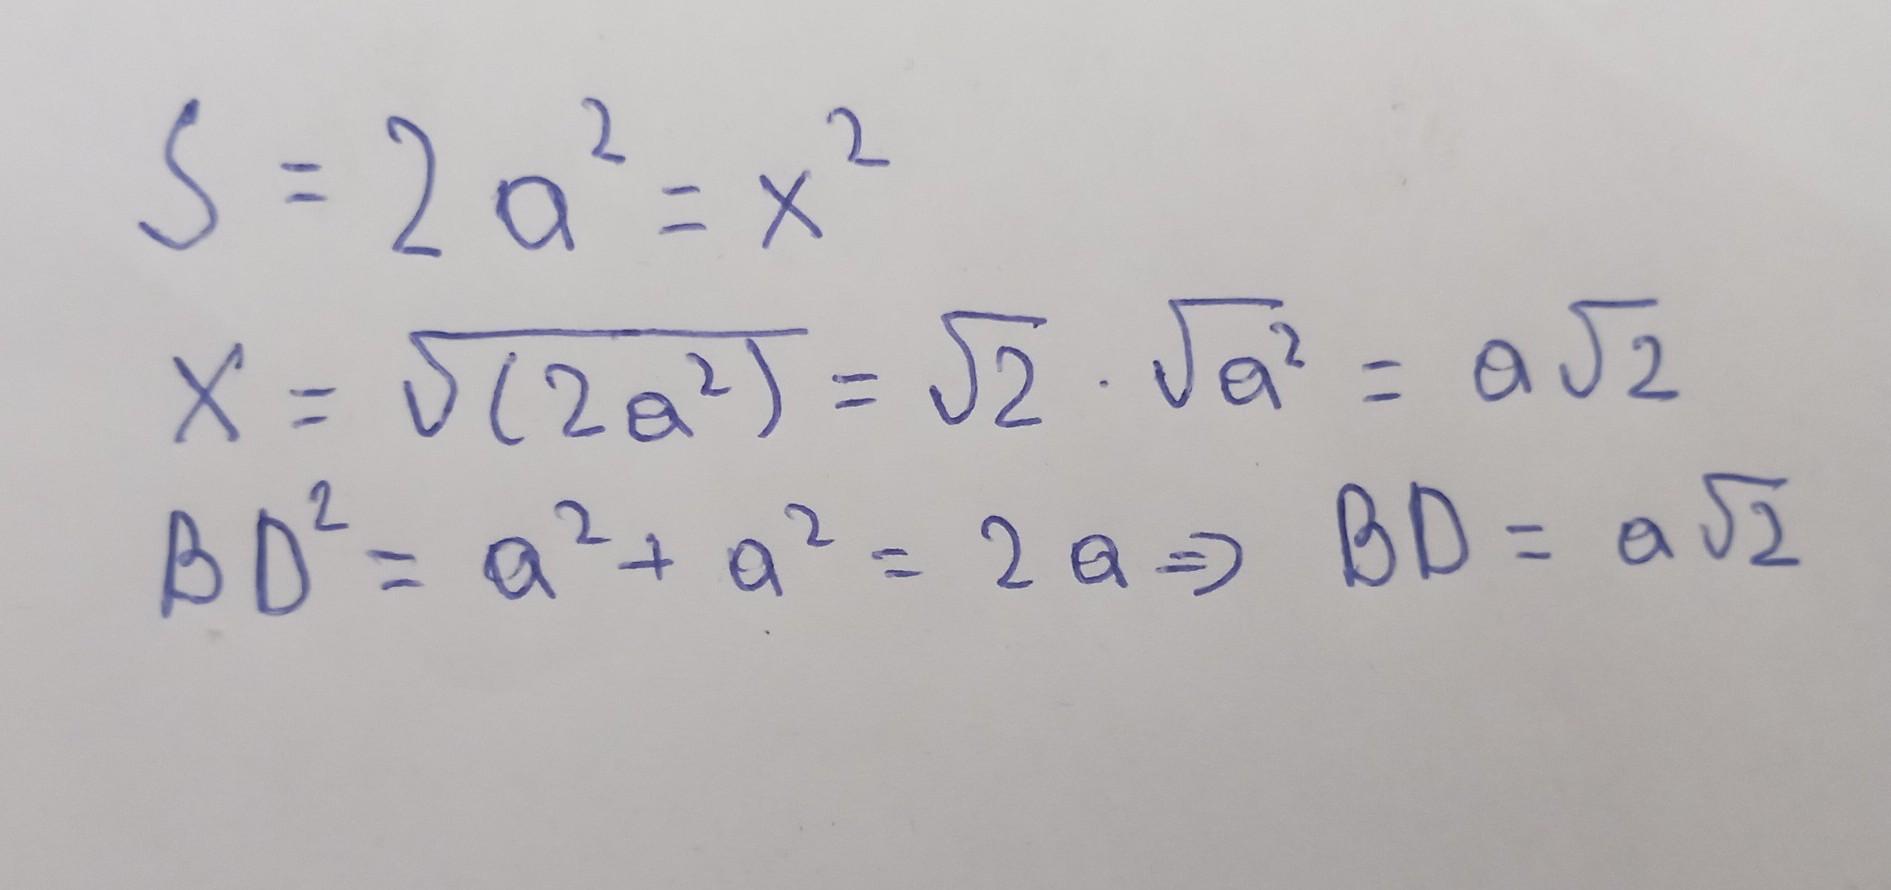 S = 2a² = x²
x = √(2a²) = √2 · √a² = a√2
BD² = a² + a² = 2a ⇒ BD = a√2